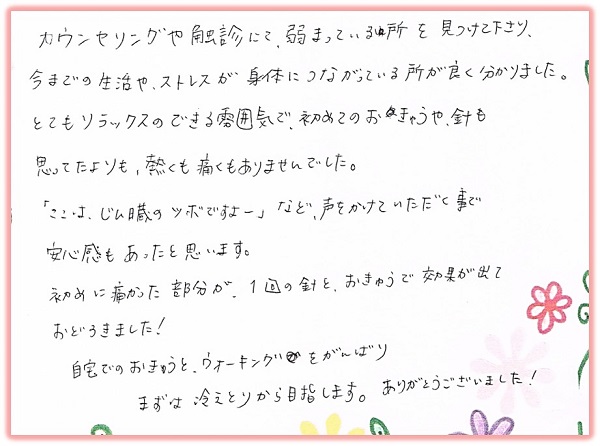 カウンセリングや触診にて、弱まっている所を見つけて下さり、
今までの生活や、ストレスが身体につながっている所が良く分かりました。
とてもリラックスのできる雰囲気で、初めてのおきゅうや、針も
思ってたよりも、熱くも痛くもありませんでした。
「ここは、じん臓のツボですよー」など、声をかけていただく事で
安心感もあったと思います。
初めに痛かった部分が、1回の針と、おきゅうで効果が出て
おどろきました!
自宅でのおきゅうと、ウォーキングをがんばり
まずは冷えとりから目指します。ありがとうございました!